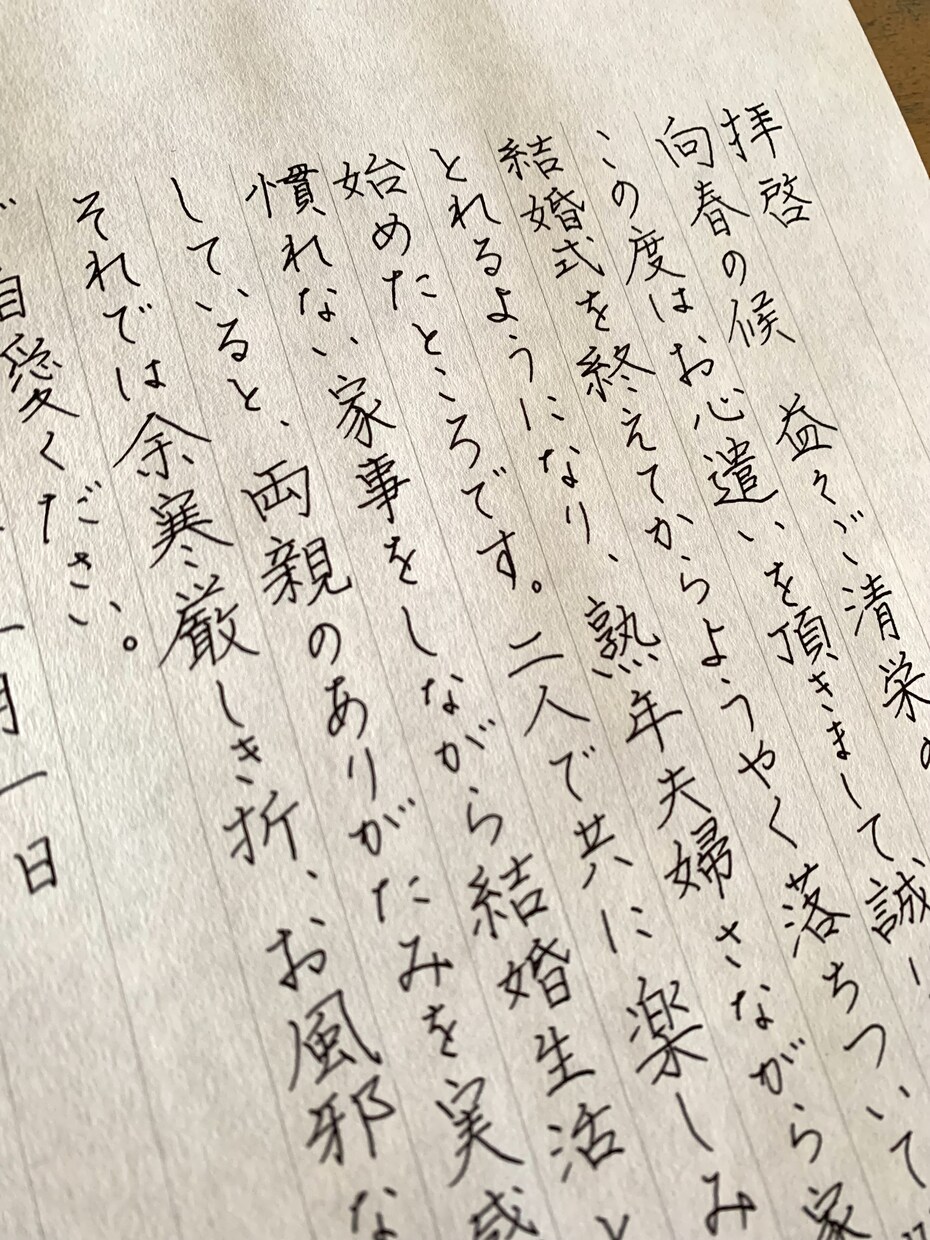 拝啓
向春の候 益々ご清栄の
この度はお心遣いを頂きまして、誠に
結婚式を終えてからようやく落ちついて
とれるようになり、熟年夫婦さながら家
始めたところです。二人で共に楽しみ
慣れない家事をしながら結婚生活と
していると、両親のありがたみを実感
それでは余寒厳しき折、お風邪な
ご自愛ください。
月一日